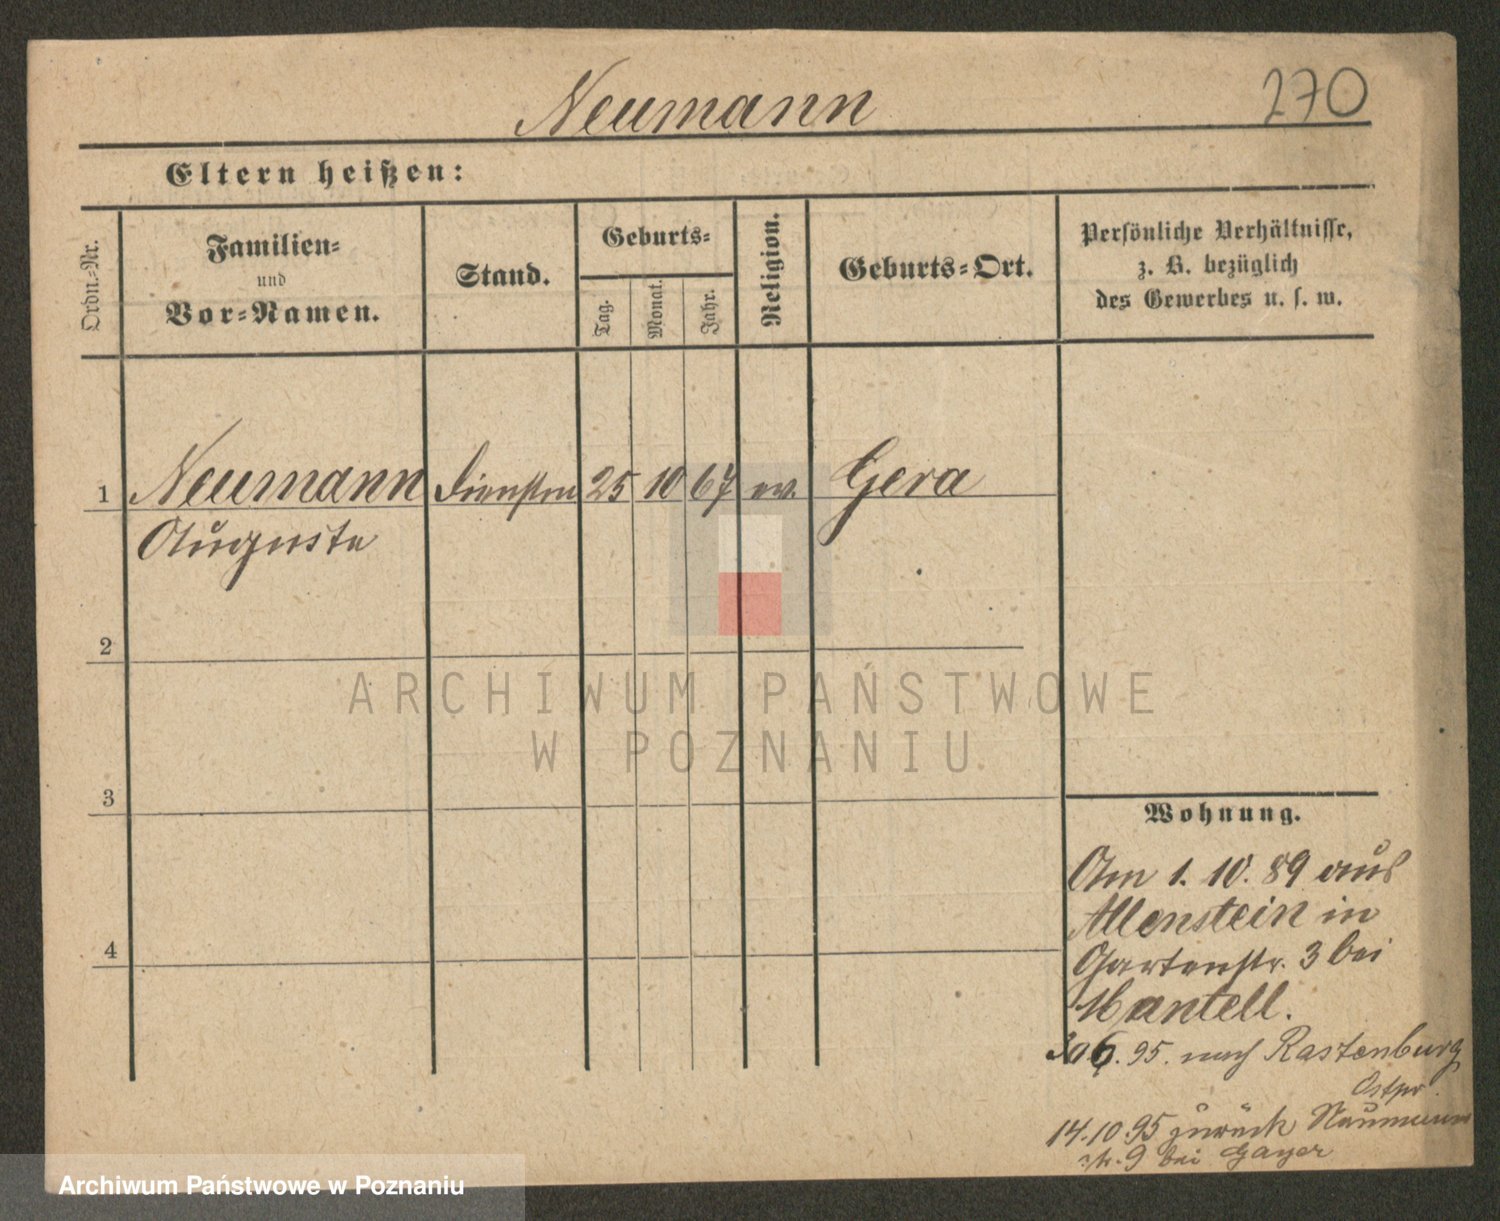 Neumann
270
Eltern heißen:
Ordn.-Nr.
Familien-
und
Vor-Namen.
Stand.
Geburts-
Tag.
Monat.
Jahr.
Religion.
Geburts-Ort.
Persönliche Verhältnisse,
z. B. bezüglich
des Gewerbes u. s. w.
1 Neumann 25 10 67 ev. Gera
Auguste
2
3
4
Wohnung.
Am 1. 10. 89 aus
Allenstein in
Gartenstr. 3 bei
Mantell.
30.6.95. nach Rastenburg
Ostpr.
14.10.95 zurück Naumann
str. 9 bei Gayer
ARCHIWUM PAŃSTWOWE
W POZNANIU
Archiwum Państwowe w Poznaniu